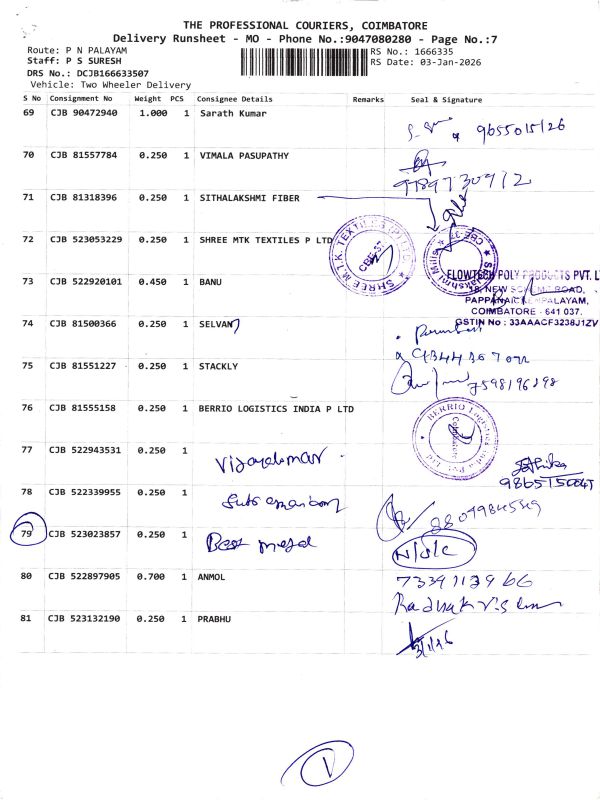 THE PROFESSIONAL COURIERS, COIMBATORE
Delivery Runsheet - MO - Phone No.:9047080280 - Page No.:7
Route: P N PALAYAM
Staff: P S SURESH
DRS No.: DCJB166633507
Vehicle: Two Wheeler Delivery
RS No.: 1666335
RS Date: 03-Jan-2026
S No Consignment No Weight PCS Consignee Details Remarks Seal & Signature
69 CJB 90472940 1.000 1 Sarath Kumar
70 CJB 81557784 0.250 1 VIMALA PASUPATHY
71 CJB 81318396 0.250 1 SITHALAKSHMI FIBER
72 CJB 523053229 0.250 1 SHREE MTK TEXTILES P LTD
SHREE M.T.K. TEXTILES (P) LTD.
CBE-37
CBE-37
73 CJB 522920101 0.450 1 BANU
FLOWTECH POLY PRODUCTS PVT. L
18, NEW SCHEME ROAD,
PAPPANAICKENPALAYAM,
COIMBATORE - 641 037.
GSTIN No : 33AAACF3238J1ZV
74 CJB 81500366 0.250 1 SELVAN
75 CJB 81551227 0.250 1 STACKLY
7598196898
76 CJB 81555158 0.250 1 BERRIO LOGISTICS INDIA P LTD
BERRIO Logistics India Pvt. Ltd
Coimbatore
77 CJB 522943531 0.250 1 Vijayakumar
78 CJB 522339955 0.250 1
79 CJB 523023857 0.250 1 Best metal
N/S/C
80 CJB 522897905 0.700 1 ANMOL
81 CJB 523132190 0.250 1 PRABHU
3/1/26
1